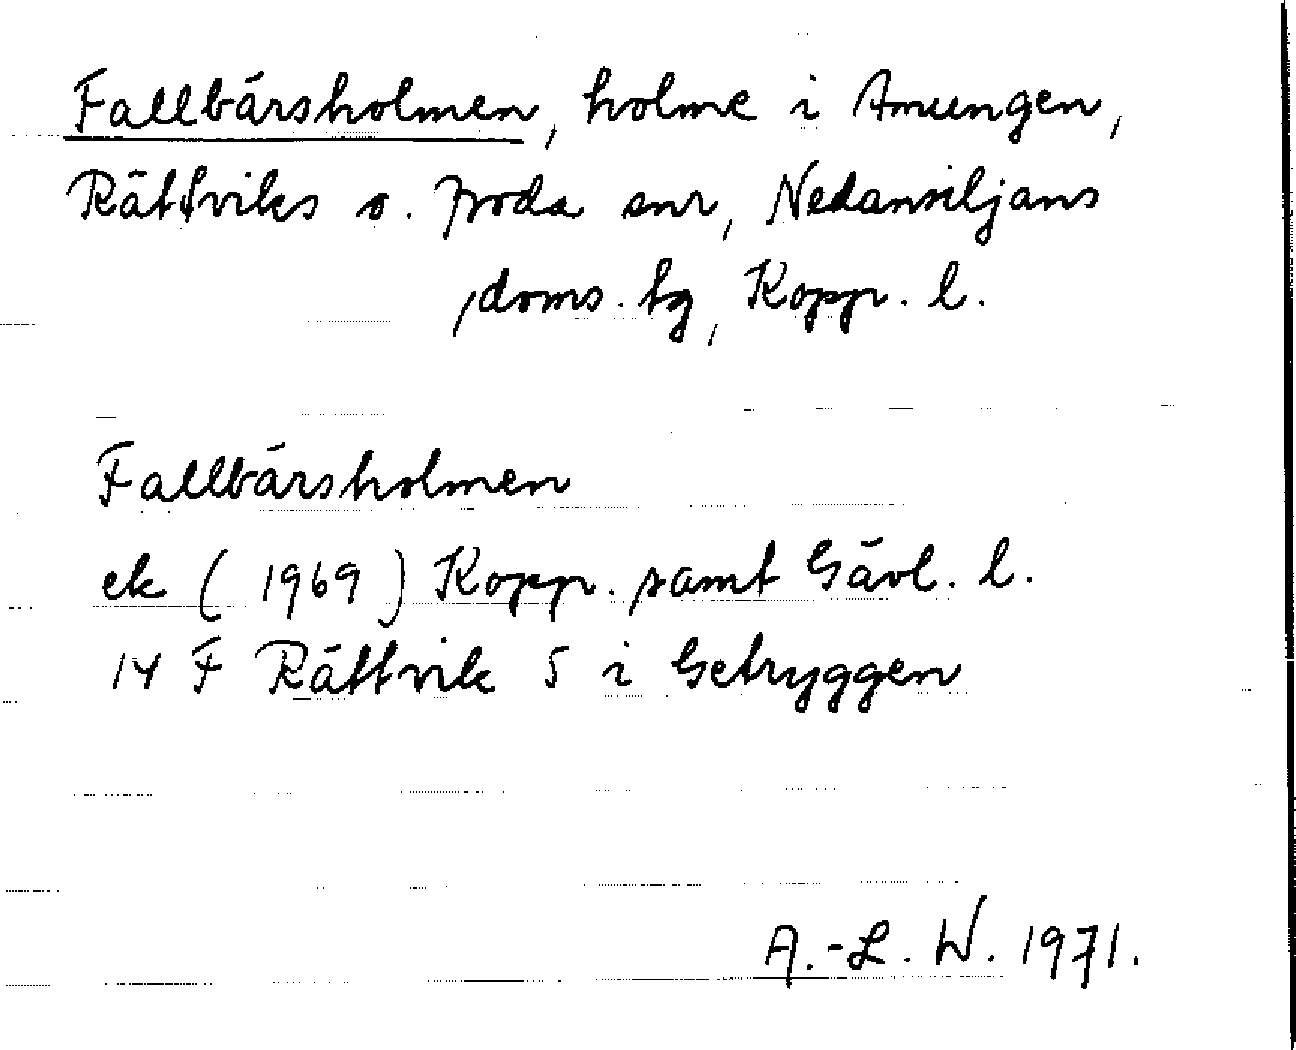 Fallbärsholmen, holme i Amungen,
Rättviks o. Boda snr, Nedansiljans
doms. tg, Kopp. l.
Fallbärsholmen
ek (1969) Kopp. samt Gävl. l.
14 F Rättvik 5 i Getryggen
A.-L. W. 1971.